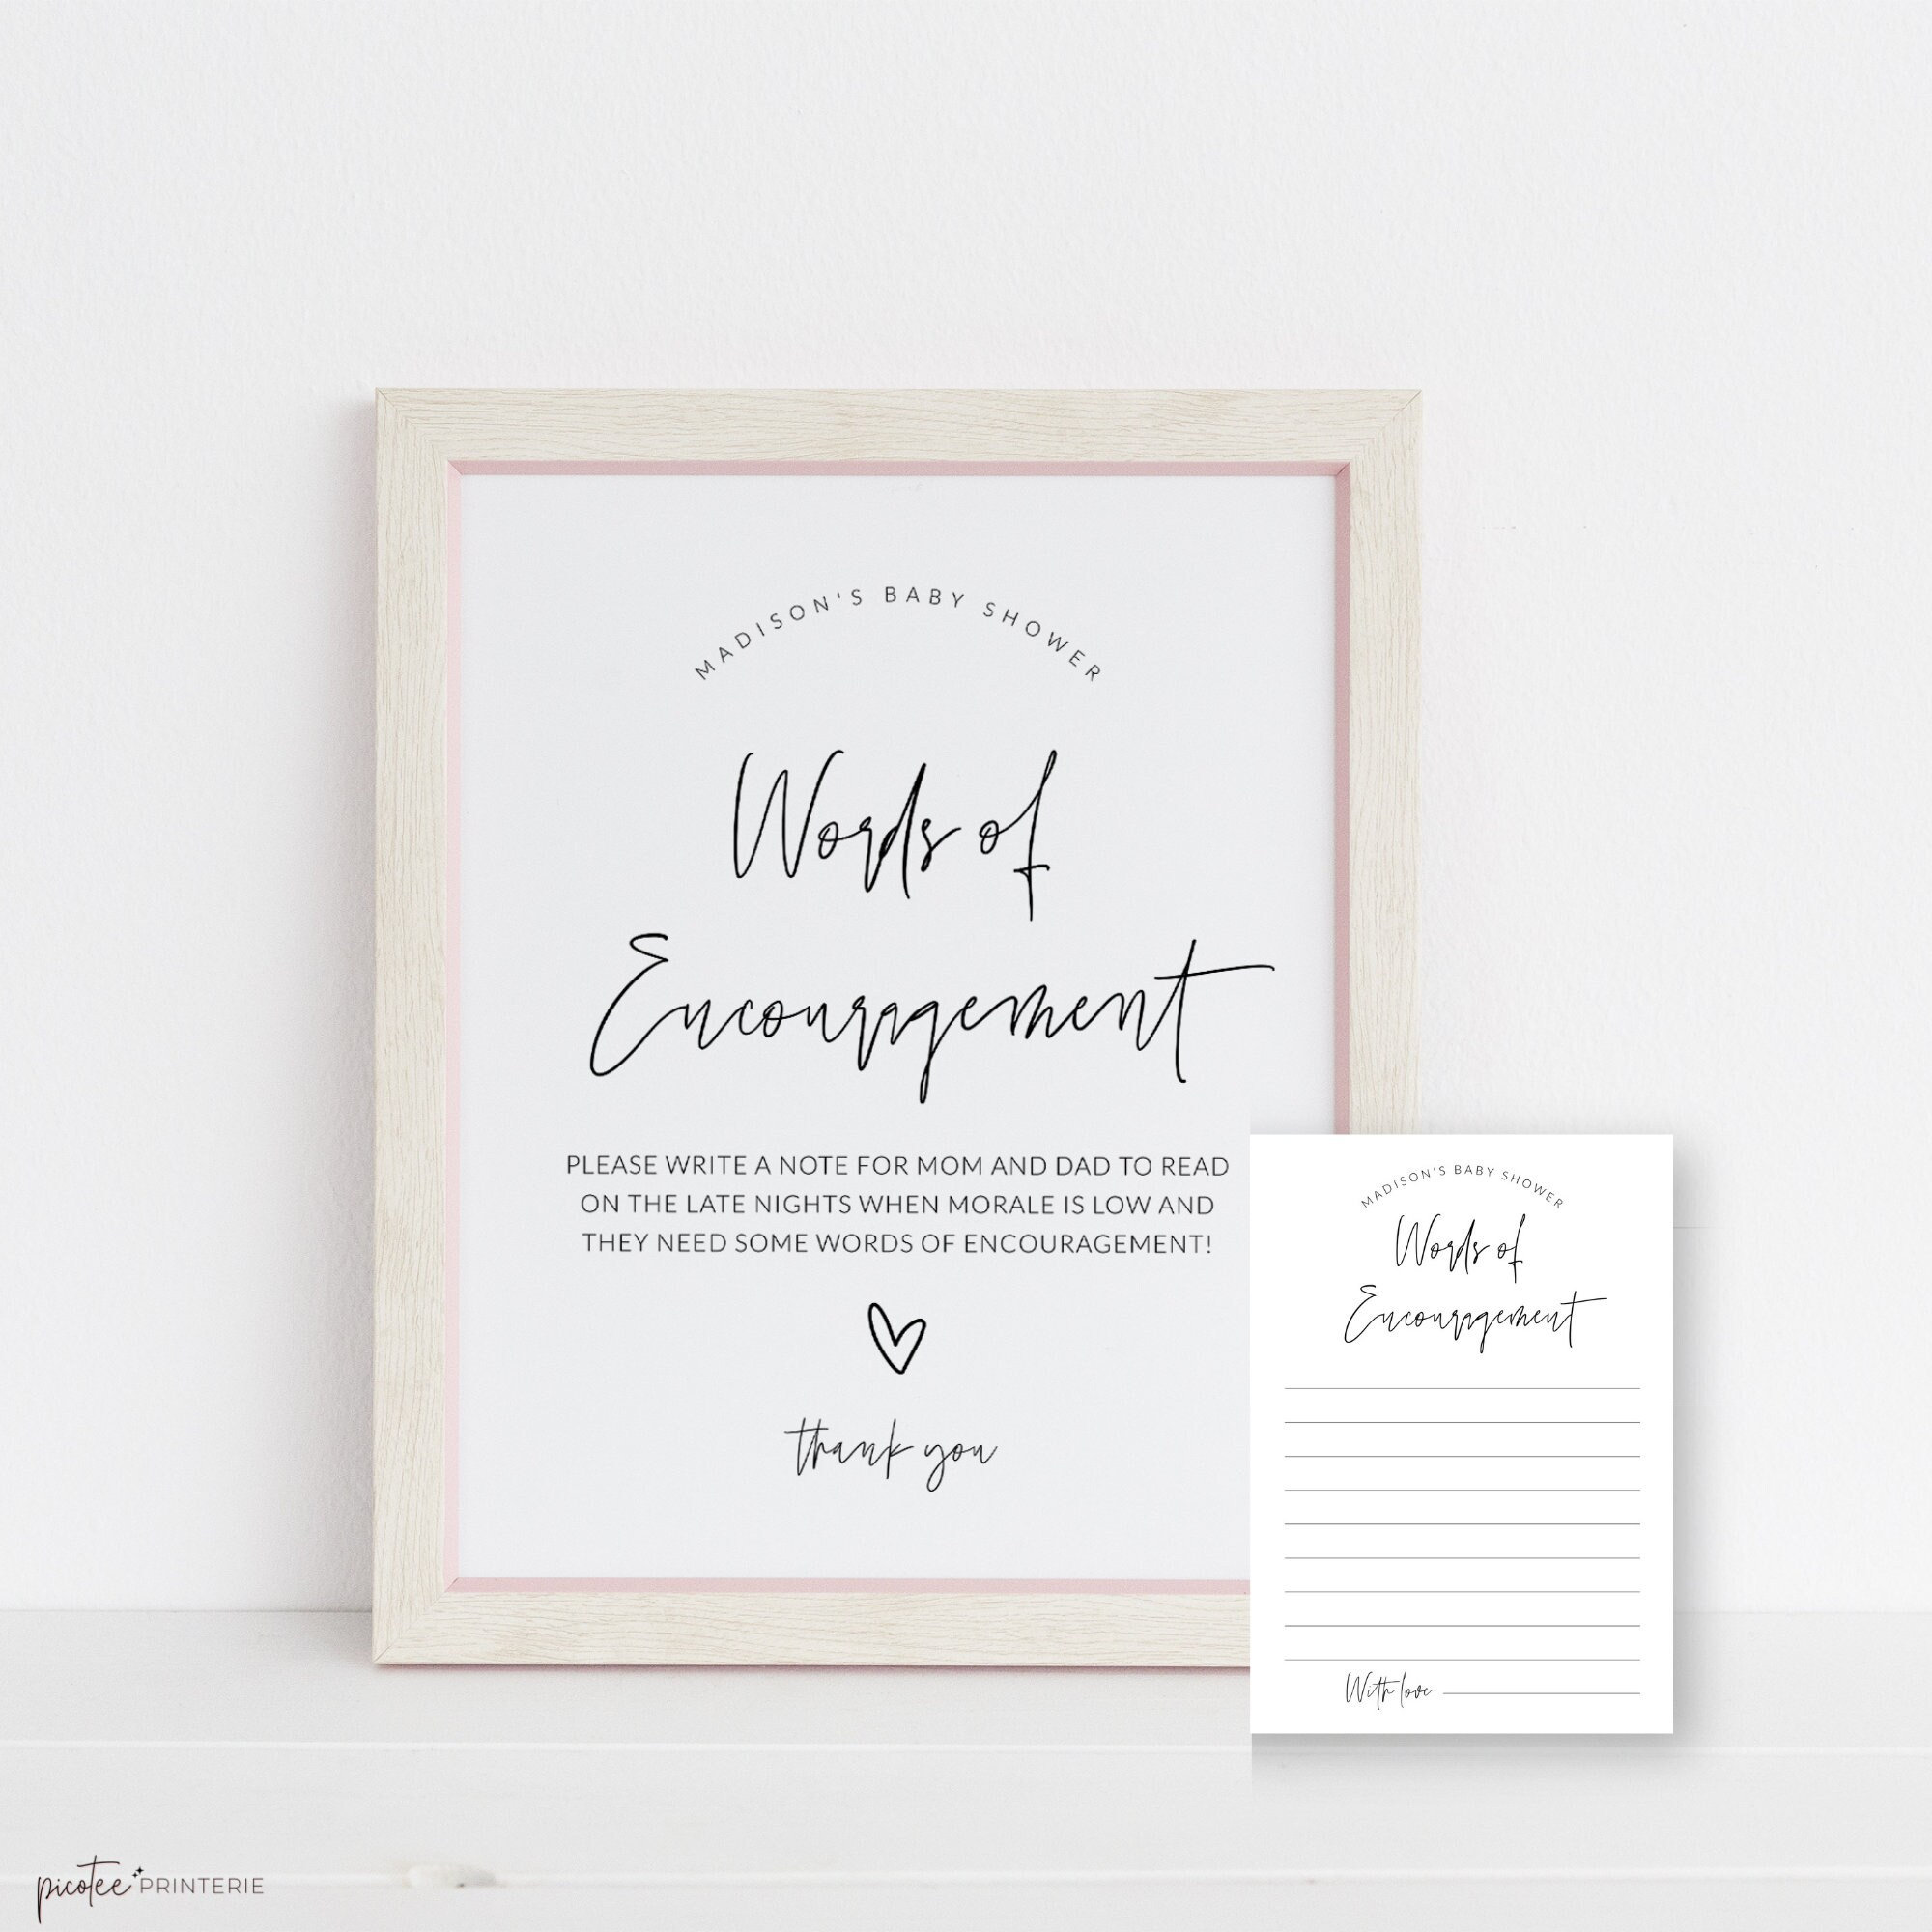 MADISON'S BABY SHOWER
Words of
Encouragement
PLEASE WRITE A NOTE FOR MOM AND DAD TO READ
ON THE LATE NIGHTS WHEN MORALE IS LOW AND
THEY NEED SOME WORDS OF ENCOURAGEMENT!
thank you
MADISON'S BABY SHOWER
Words of
Encouragement
With love
picotee PRINTERIE